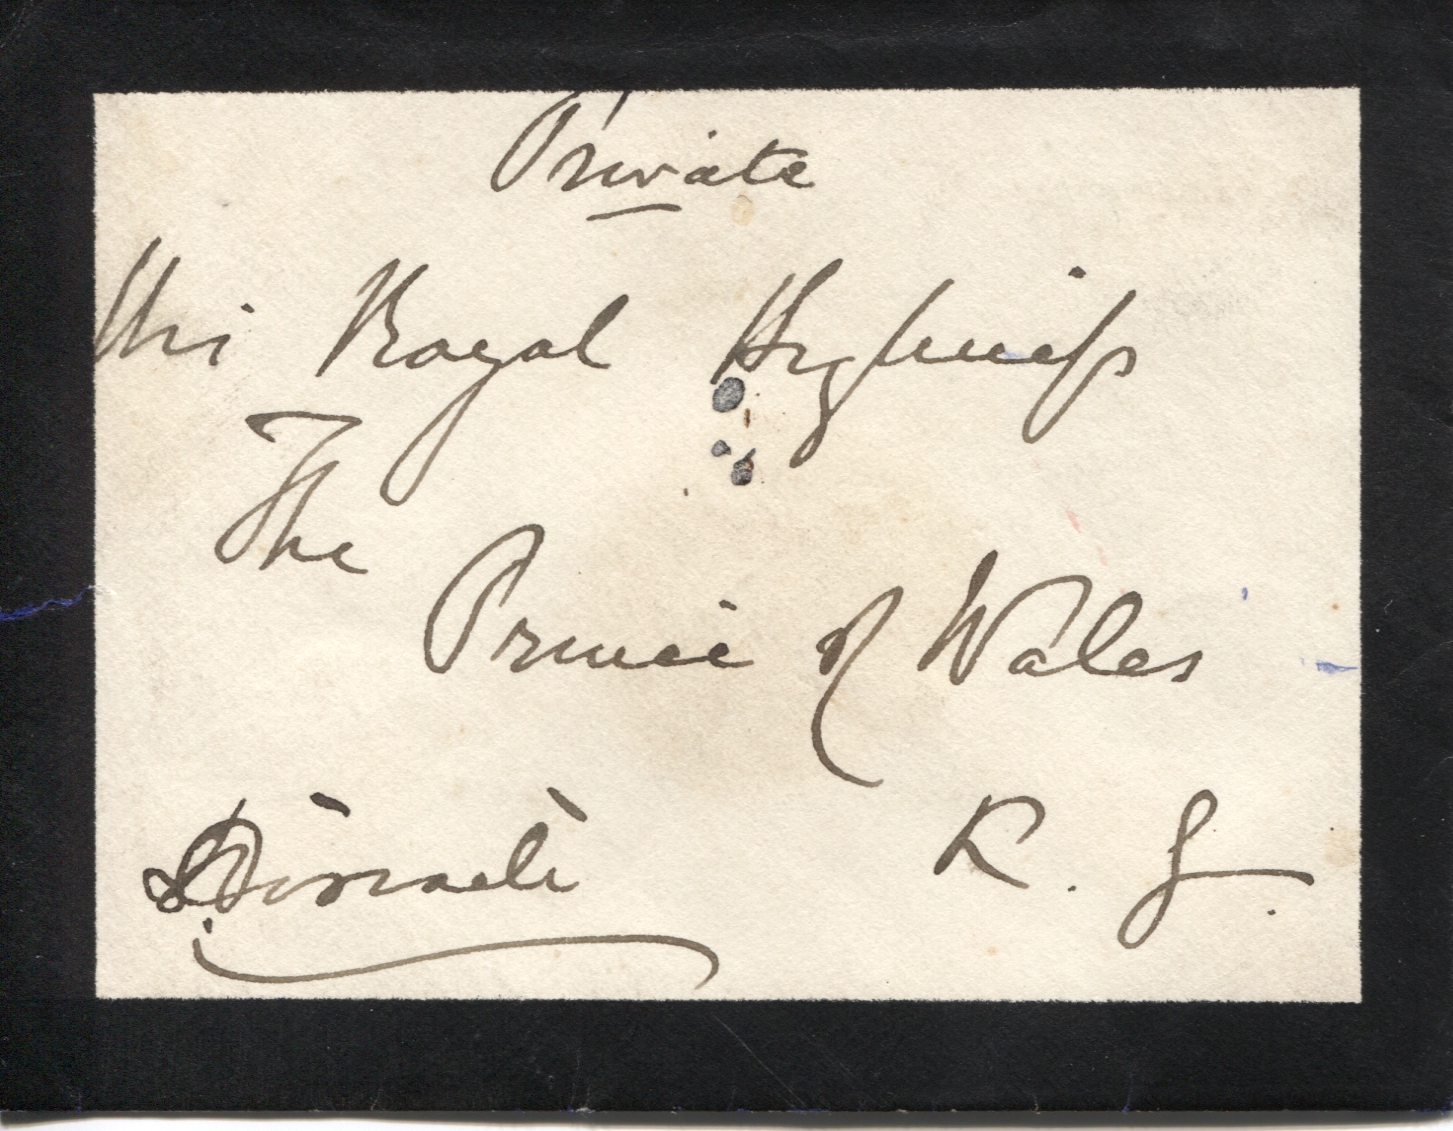 Private
His Royal Highness
The
Prince of Wales
K. G.
Disraeli